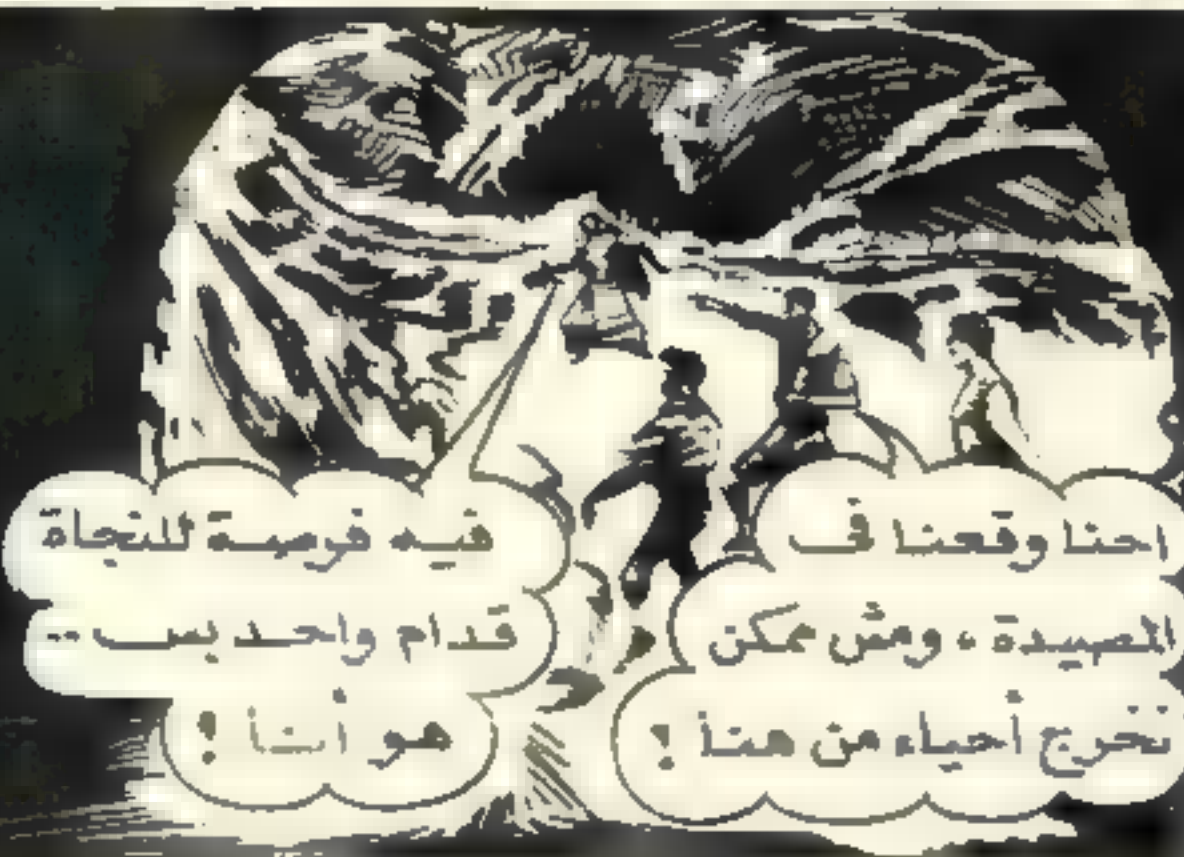 احنا وقعنا ف
المصيدة ، ومش ممكن
نخرج أحياء من هنا !
فيه فرصة للنجاة
قدام واحد بس ..
هو أنا !